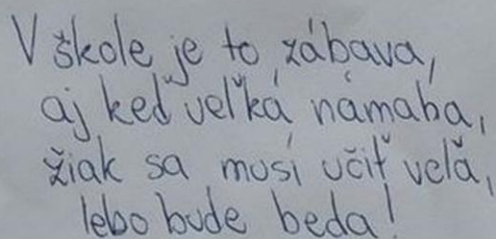 V škole je to zábava,
aj keď veľká námaha,
žiak sa musí učiť veľa,
lebo bude beda!